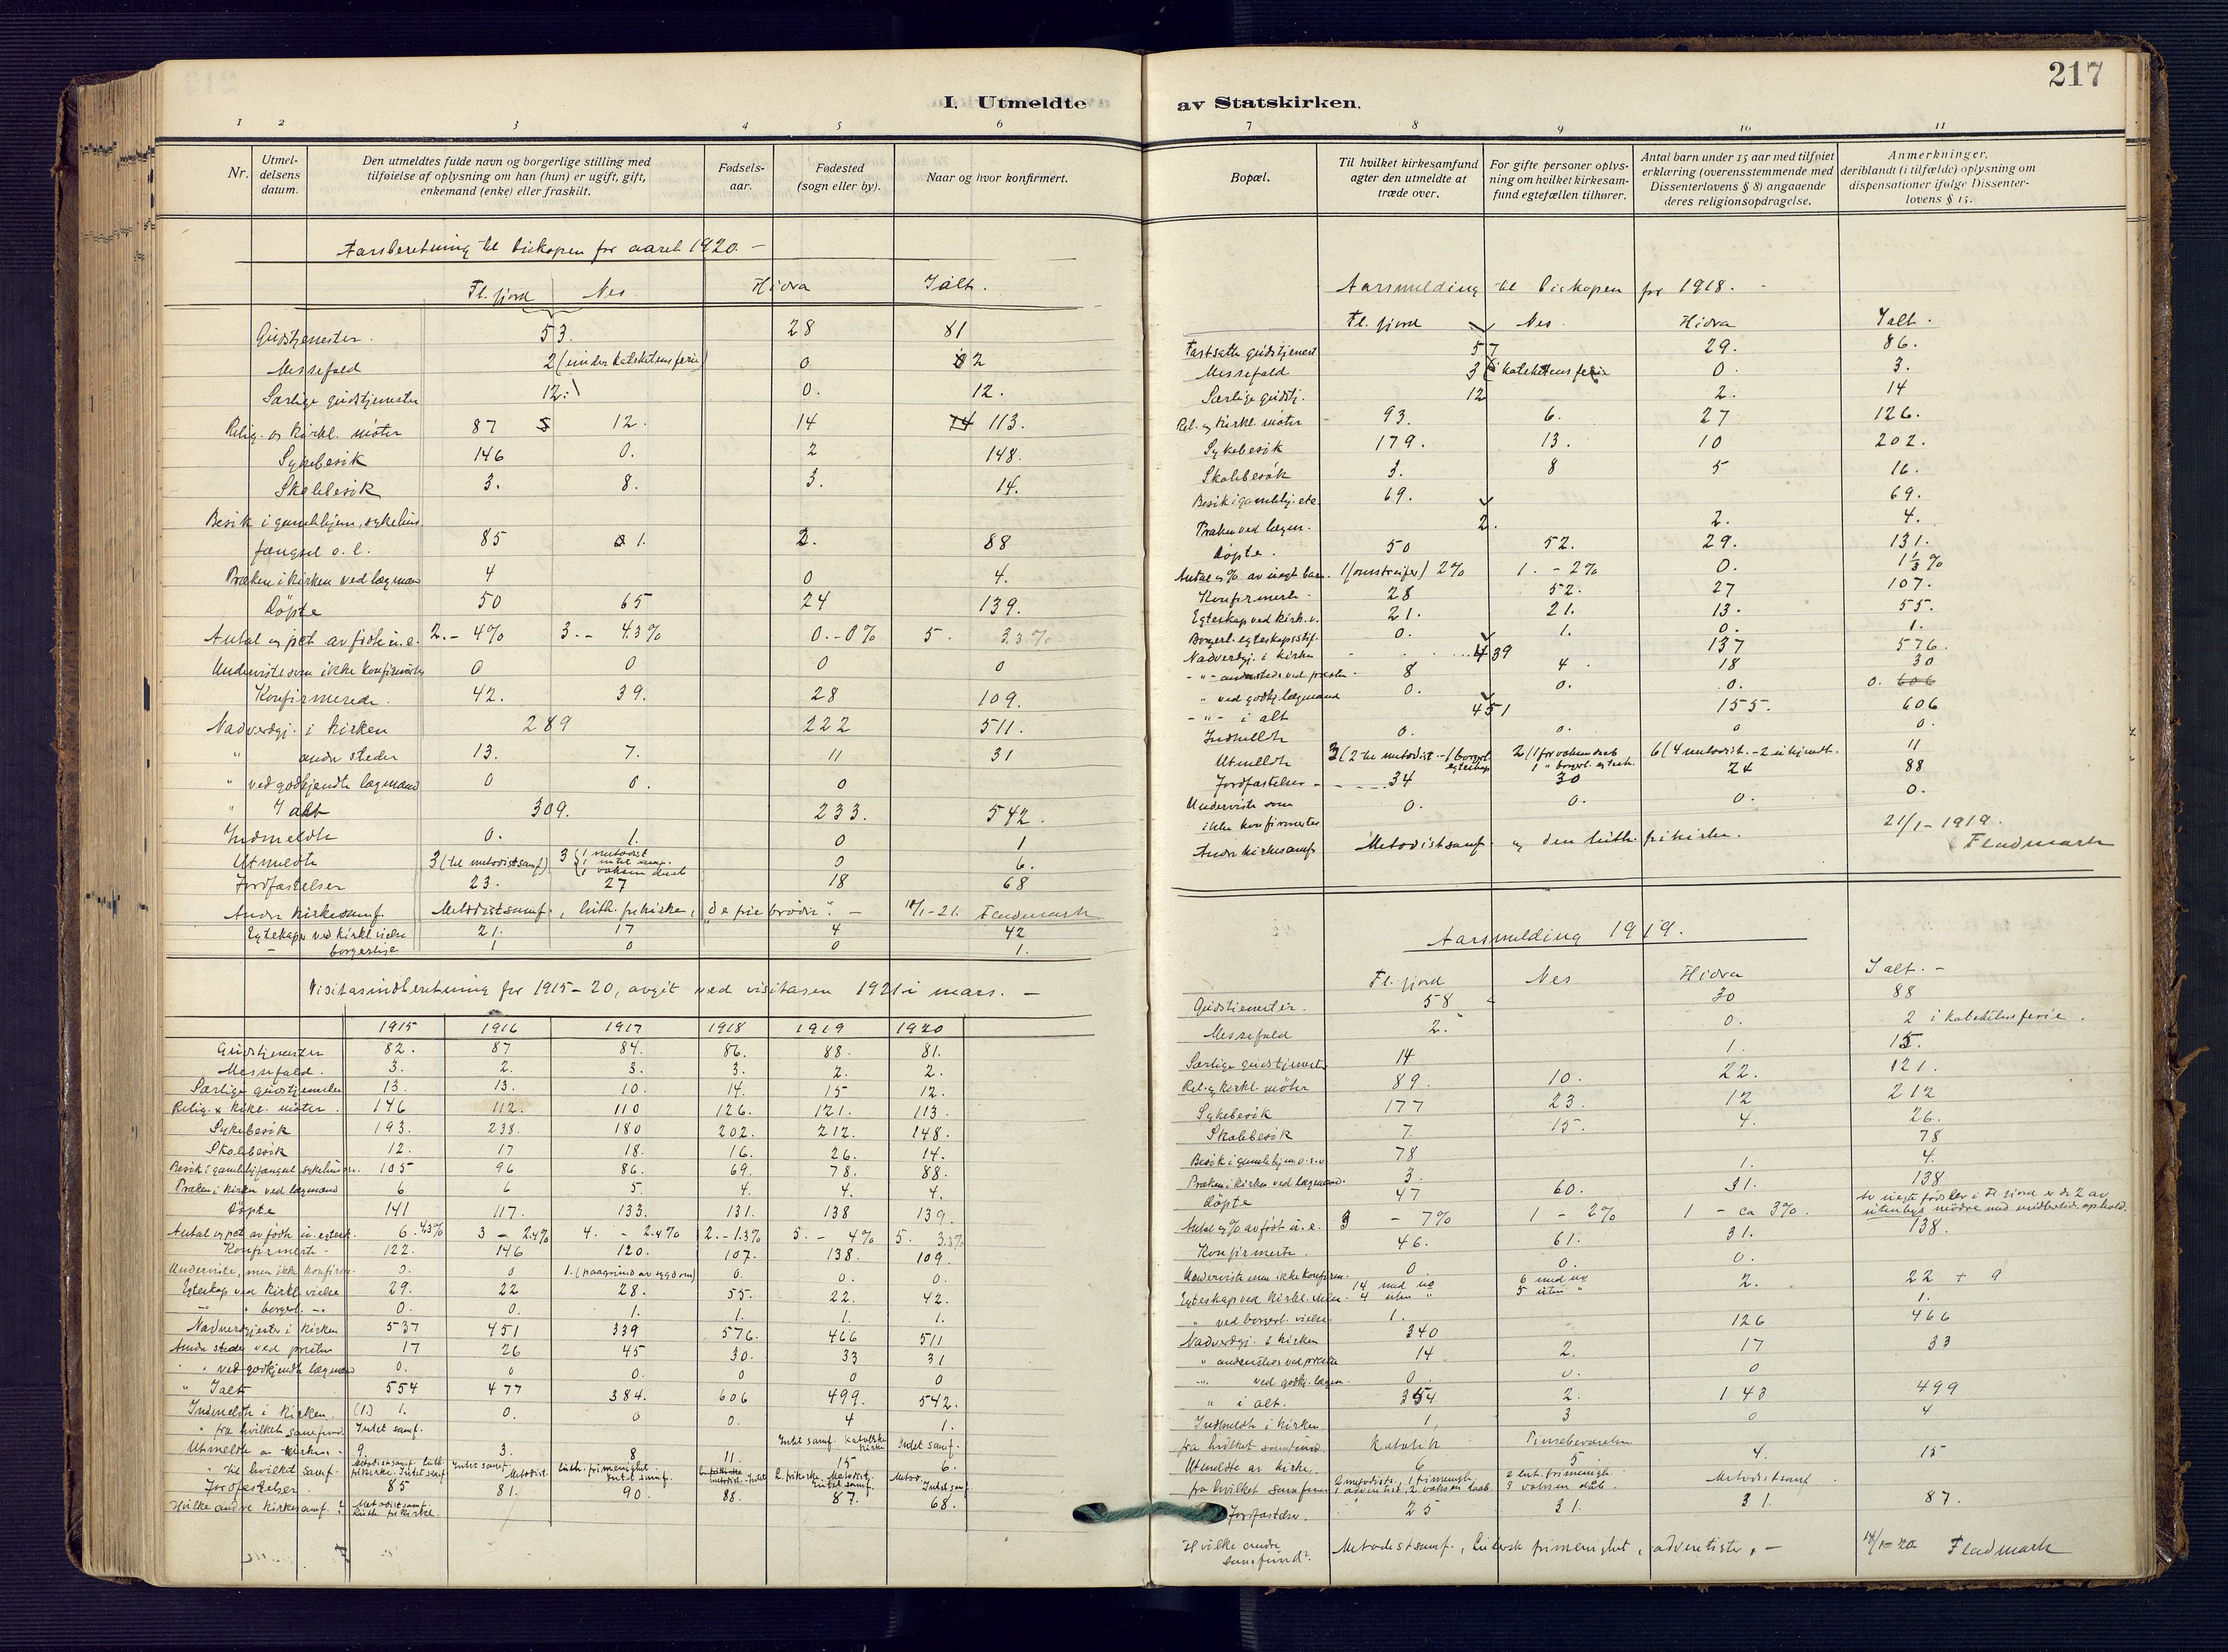 217
I. Utmeldte
1 2 3 4 5 6
Nr. | Utmel-delsens datum. | Den utmeldtes fulde navn og borgerlige stilling med tilføielse af oplysning om han (hun) er ugift, gift, enkemand (enke) eller fraskilt. | Fødsels-aar. | Fødested (sogn eller by). | Naar og hvor konfirmert.
Aarsberetning til biskopen for aaret 1920. –
Fl. fjord Nes Hidra Ialt.
Gudstjenester. 53. 28 81
Messefald 2 (under katekitens ferie) 0 2
Særlige gudstjenester 12. 0. 12.
Relig. og Kirkl. möter 87 12. 14 113.
Sykebesök 146 0. 2 148.
Skolebesök 3. 8. 3. 14.
Besök i gamlehjem, sykehus,
fængsel o. l. 85 1. 2. 88
Præken i Kirken ved lægmand 4 0 4.
Döpte 50 65 24 139.
Antal og pct av födte u. e. 2. – 4% 3. – 4.3% 0. – 0% 5. 3.3%
Underviste som ikke konfirmertes 0 0 0 0
Konfirmerede. 42. 39. 28 109.
Nadverdgj. i Kirken 289 222 511.
" andre steder 13. 7. 11 31
" ved godkjendte lægmænd 0 0. 0
" I alt 309. 233. 542.
Indmeldte 0. 1. 0 1
Utmeldte 3 (til metodistsamf) 3 (1 metodist 1 intet samf. 1 voksen daab 0 6.
Jordfæstelser 23. 27 18 68
Andre Kirkesamf. Metodistsamf., luth. frikirke, "de frie brödre". – 18/1-21. Fladmark
Egteskaper ved Kirkl. vielse 21. 17 4 42
– borgerlige 1 0 0 1.
Visitasindberetning for 1915–20, avgit ved visitasen 1921 i mars. –
1915 1916 1917 1918 1919 1920
Gudstjenester 82. 87 84. 86. 88. 81.
Messefald. 3. 2. 3. 3. 2. 2.
Særlige gudstjenester 13. 13. 10. 14. 15 12.
Relig. & Kirkl. möter. 146 112. 110 126. 121. 113.
Sykebesök 193. 238. 180 202. 212. 148.
Skolebesök 12. 17 18. 16. 26. 14.
Besök i gamlehj. fængsel, sykehus osv. 105 96 86. 69. 78. 88.
Præken i Kirken ved lægmand 6 6 5. 4. 4. 4.
Döpte 141 117. 133. 131. 138 139.
Antal og pct av födte u. egtesk. 6. 4.3% 3 – 2.4% 4. – 2.4% 2. – 1.3% 5. – 4% 5. 3.3%
Konfirmerte – 122. 146 120. 107. 138. 109.
Underviste, men ikke konfirm. 0. 0 1. (paagrund av sygdom) 0. 0. 0.
Egteskap ved Kirkl. vielse 29. 22 28. 55. 22. 42.
– " borgerl. –" 0. 0. 1. 1. 1. 1.
Nadverdgjester i Kirken 537 451 339 576. 466 511
Andre steder ved presten 17 26 45 30. 33 31
" " ved godkjendte lægmænd 0. 0 0. 0 0 0
" Ialt 554 477 384. 606 499. 542.
Indmeldte i Kirken. (1.) 1. 0. 0 0. 4 1.
" fra hvilket samfund. Intet samf. Intet samf. Katolske Kirke Intet samf.
Utmeldte av Kirken – 9. 3. 8 11. 15 6.
" til hvilket samf. Metodistsamf. Luth. frikirke. Intet samf Intet samf. Metodist. Luth. frimenighet Intet samf. L. frikirke. Metodistsj. Intet samf. Metod. Intet samf
Jordfæstelser. 85 81. 90. 88. 87. 68.
Hvilke andre Kirkesamf.? Metodistsamf. Luth. frikirke.
av Statskirken.
7 8 9 10 11
Bopæl. | Til hvilket kirkesamfund agter den utmeldte at træde over. | For gifte personer oplys-ning om hvilket kirkesam-fund egtefællen tilhører. | Antal barn under 15 aar med tilføiet erklæring (overensstemmende med Dissenterlovens § 8) angaaende deres religionsopdragelse. | Anmerkninger, deriblandt (i tilfælde) oplysning om dispensationer ifølge Dissenter-lovens § 15.
Aarsmelding til biskopen for 1918. –
Fl. fjord Nes. Hidra I alt.
Fastsatte gudstjenest 57 29. 86.
Messefald 3 (i katekitens ferie 0. 3.
Særlige gudstj. 12 2. 14
Rel. og Kirkl. möter 93. 6. 27 126.
Sykebesök 179. 13. 10 202.
Skolebesök 3. 8 5 16.
Besök i gamlehj. etc. 69. 69.
Præken ved lægm. 2. 2. 4.
Döpte. 50 52. 29. 131.
Antal og % av uegte barn. 1 (omstreifer) 2% 1. – 2% 0. 1 1/3 %
Konfirmerte – 28 52. 27 107.
Egteskap ved Kirk. v. 21. 21. 13. 55.
Borgerl. egteskapsstif. 0. 1. 0. 1.
Nadverdgj. i Kirken 439 137 576.
– " – andensteds ved presten 8 4. 18 30
" ved godkj. lægmænd 0. 0. 0. 0. 606
– " – i alt 451 155. 606
Indmeldte 0. 0. 0 0.
Utmeldte 3 (2 til metodist – 1 borgerl. egteskap 2 (1 for voksen daab 1 " borgerl. egtesk. 6 (4 metodist. – 2 ukjendt. 11
Jordfæstelser – 34 30 24 88
Underviste som
ikke konfirmertes 0. 0. 0. 0.
Andre Kirkesamf Metodistsamf. og den luth. frikirke. 21/1-1919. Fladmark
Aarsmelding 1919.
Fl. fjord Nes Hidra I alt. –
Gudstjenester. 58 30 88
Messefald 2. 0. 2 i katekitens ferie.
Særlige gudstjenester 14 1. 15.
Rel. og Kirkl. möter 89. 10. 22. 121.
Sykebesök 177 23. 12 212
Skolebesök 7. 15. 4. 26.
Besök i gamlehjem o.s.v. 78 78
Præken i Kirken ved lægmand. 3. 1. 4.
Döpte 47 60. 31. 138
Av uegte födsler i Fl. fjord er de 2 av utenbys mödre med midlertid. ophold.
Antal og % av födt u. e. 3 – 7% 1 – 2% 1 – ca 3%.
Konfirmerte. 46. 61. 31. 138.
Underviste men ikke konfirm. 0 0. 0.
Egteskap ved Kirkl. vielse 14 med ug 4 uten " 6 med ug 5 uten " 2. 22 + 9
" ved borgerl. vielse. 1. 1.
Nadverdgj. i Kirken 340 126 466
" andensteds ved presten 14 2. 17 33
" ved godkj. lægm. 0. 0. 0
" i alt. 354 2. 143 499
Indmeldte i Kirken 1, 3 0 4
fra hvilket samfund. Katolik Pinsebevægelsen
Utmeldte av Kirke. 6 5 4. 15
fra hvilket samfund 2 metodister, 1 frimenigh. 1 adventist, 2 voksen daab 2 luth. frimenigh. 3 voksen daab. Metodistsamf
Jordfæstelser. 25 31. 31. 87.
Hvilke andre samfund? Metodistsamf., Luthersk frimenighet, adventister, – 14/1-20 Fladmark